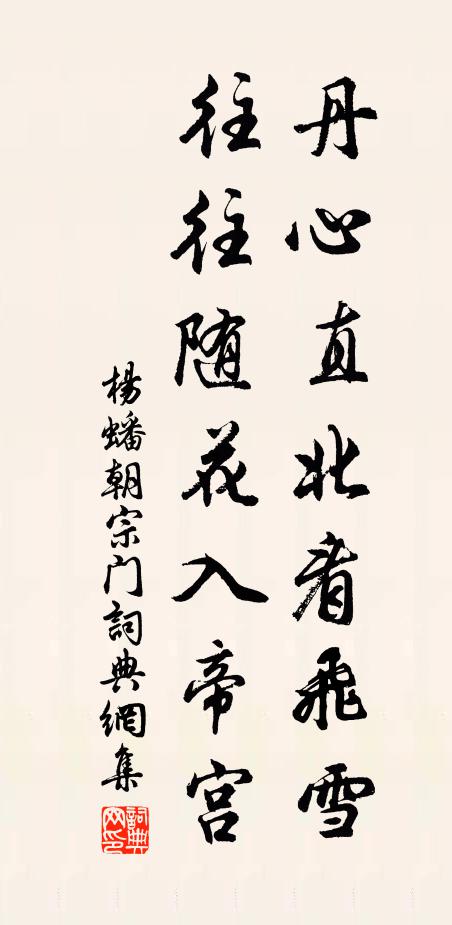 丹心直北看飛雪
往往随花入帝宫
楊蟠朝宗门詞典網集
詞典网印